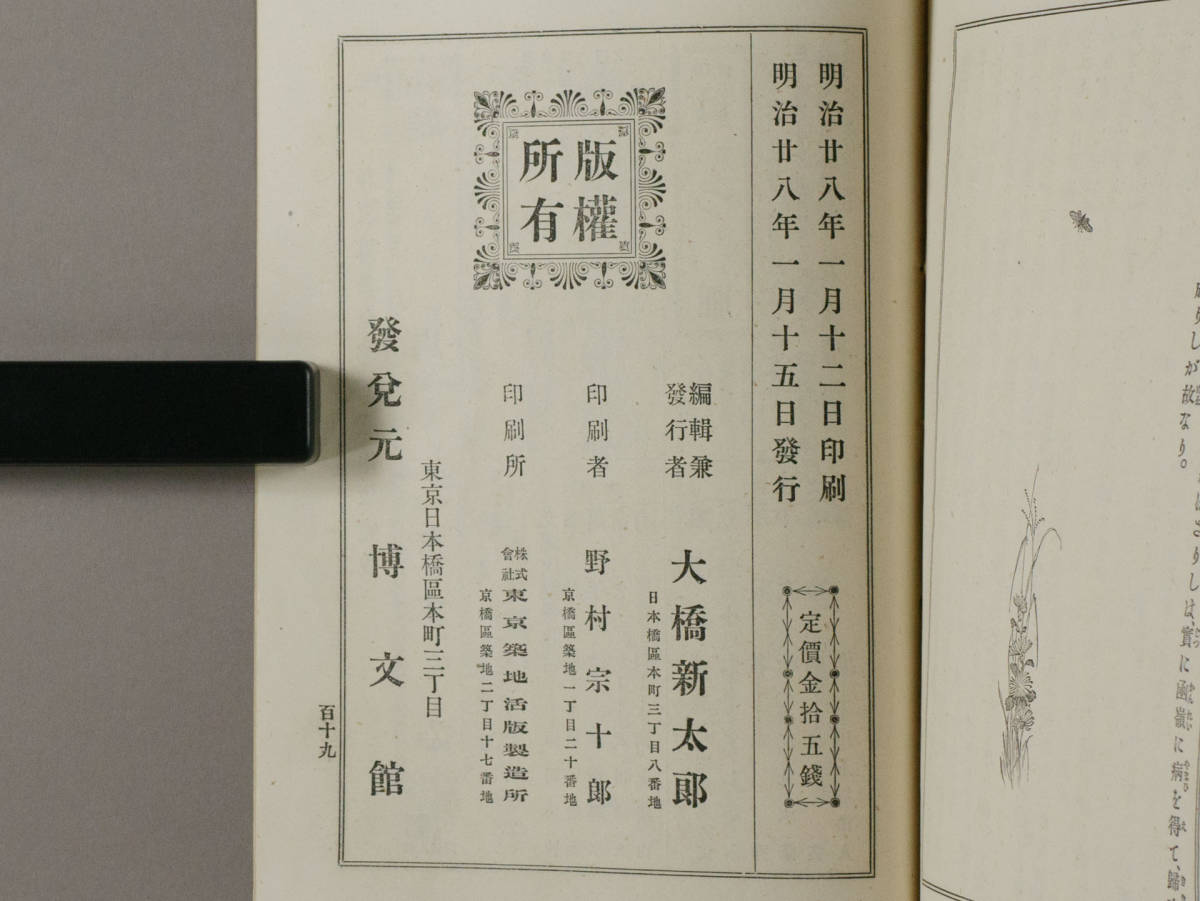 りしは、實に函嶺に病を得て、歸
りしが故なり。
明治廿八年一月十二日印刷
明治廿八年一月十五日發行
定價金拾五錢
版權
所有
編輯兼
發行者
大橋新太郎
日本橋區本町三丁目八番地
印刷者
野村宗十郎
京橋區築地一丁目二十番地
印刷所
株式
會社
東京築地活版製造所
京橋區築地二丁目十七番地
東京日本橋區本町三丁目
發兌元 博文館
百十九